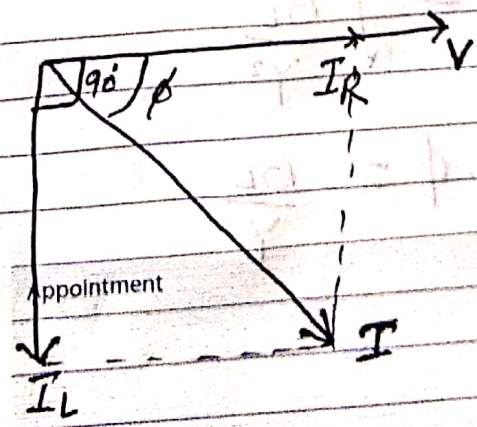 V
I_R
90°
φ
Appointment
I
I_L